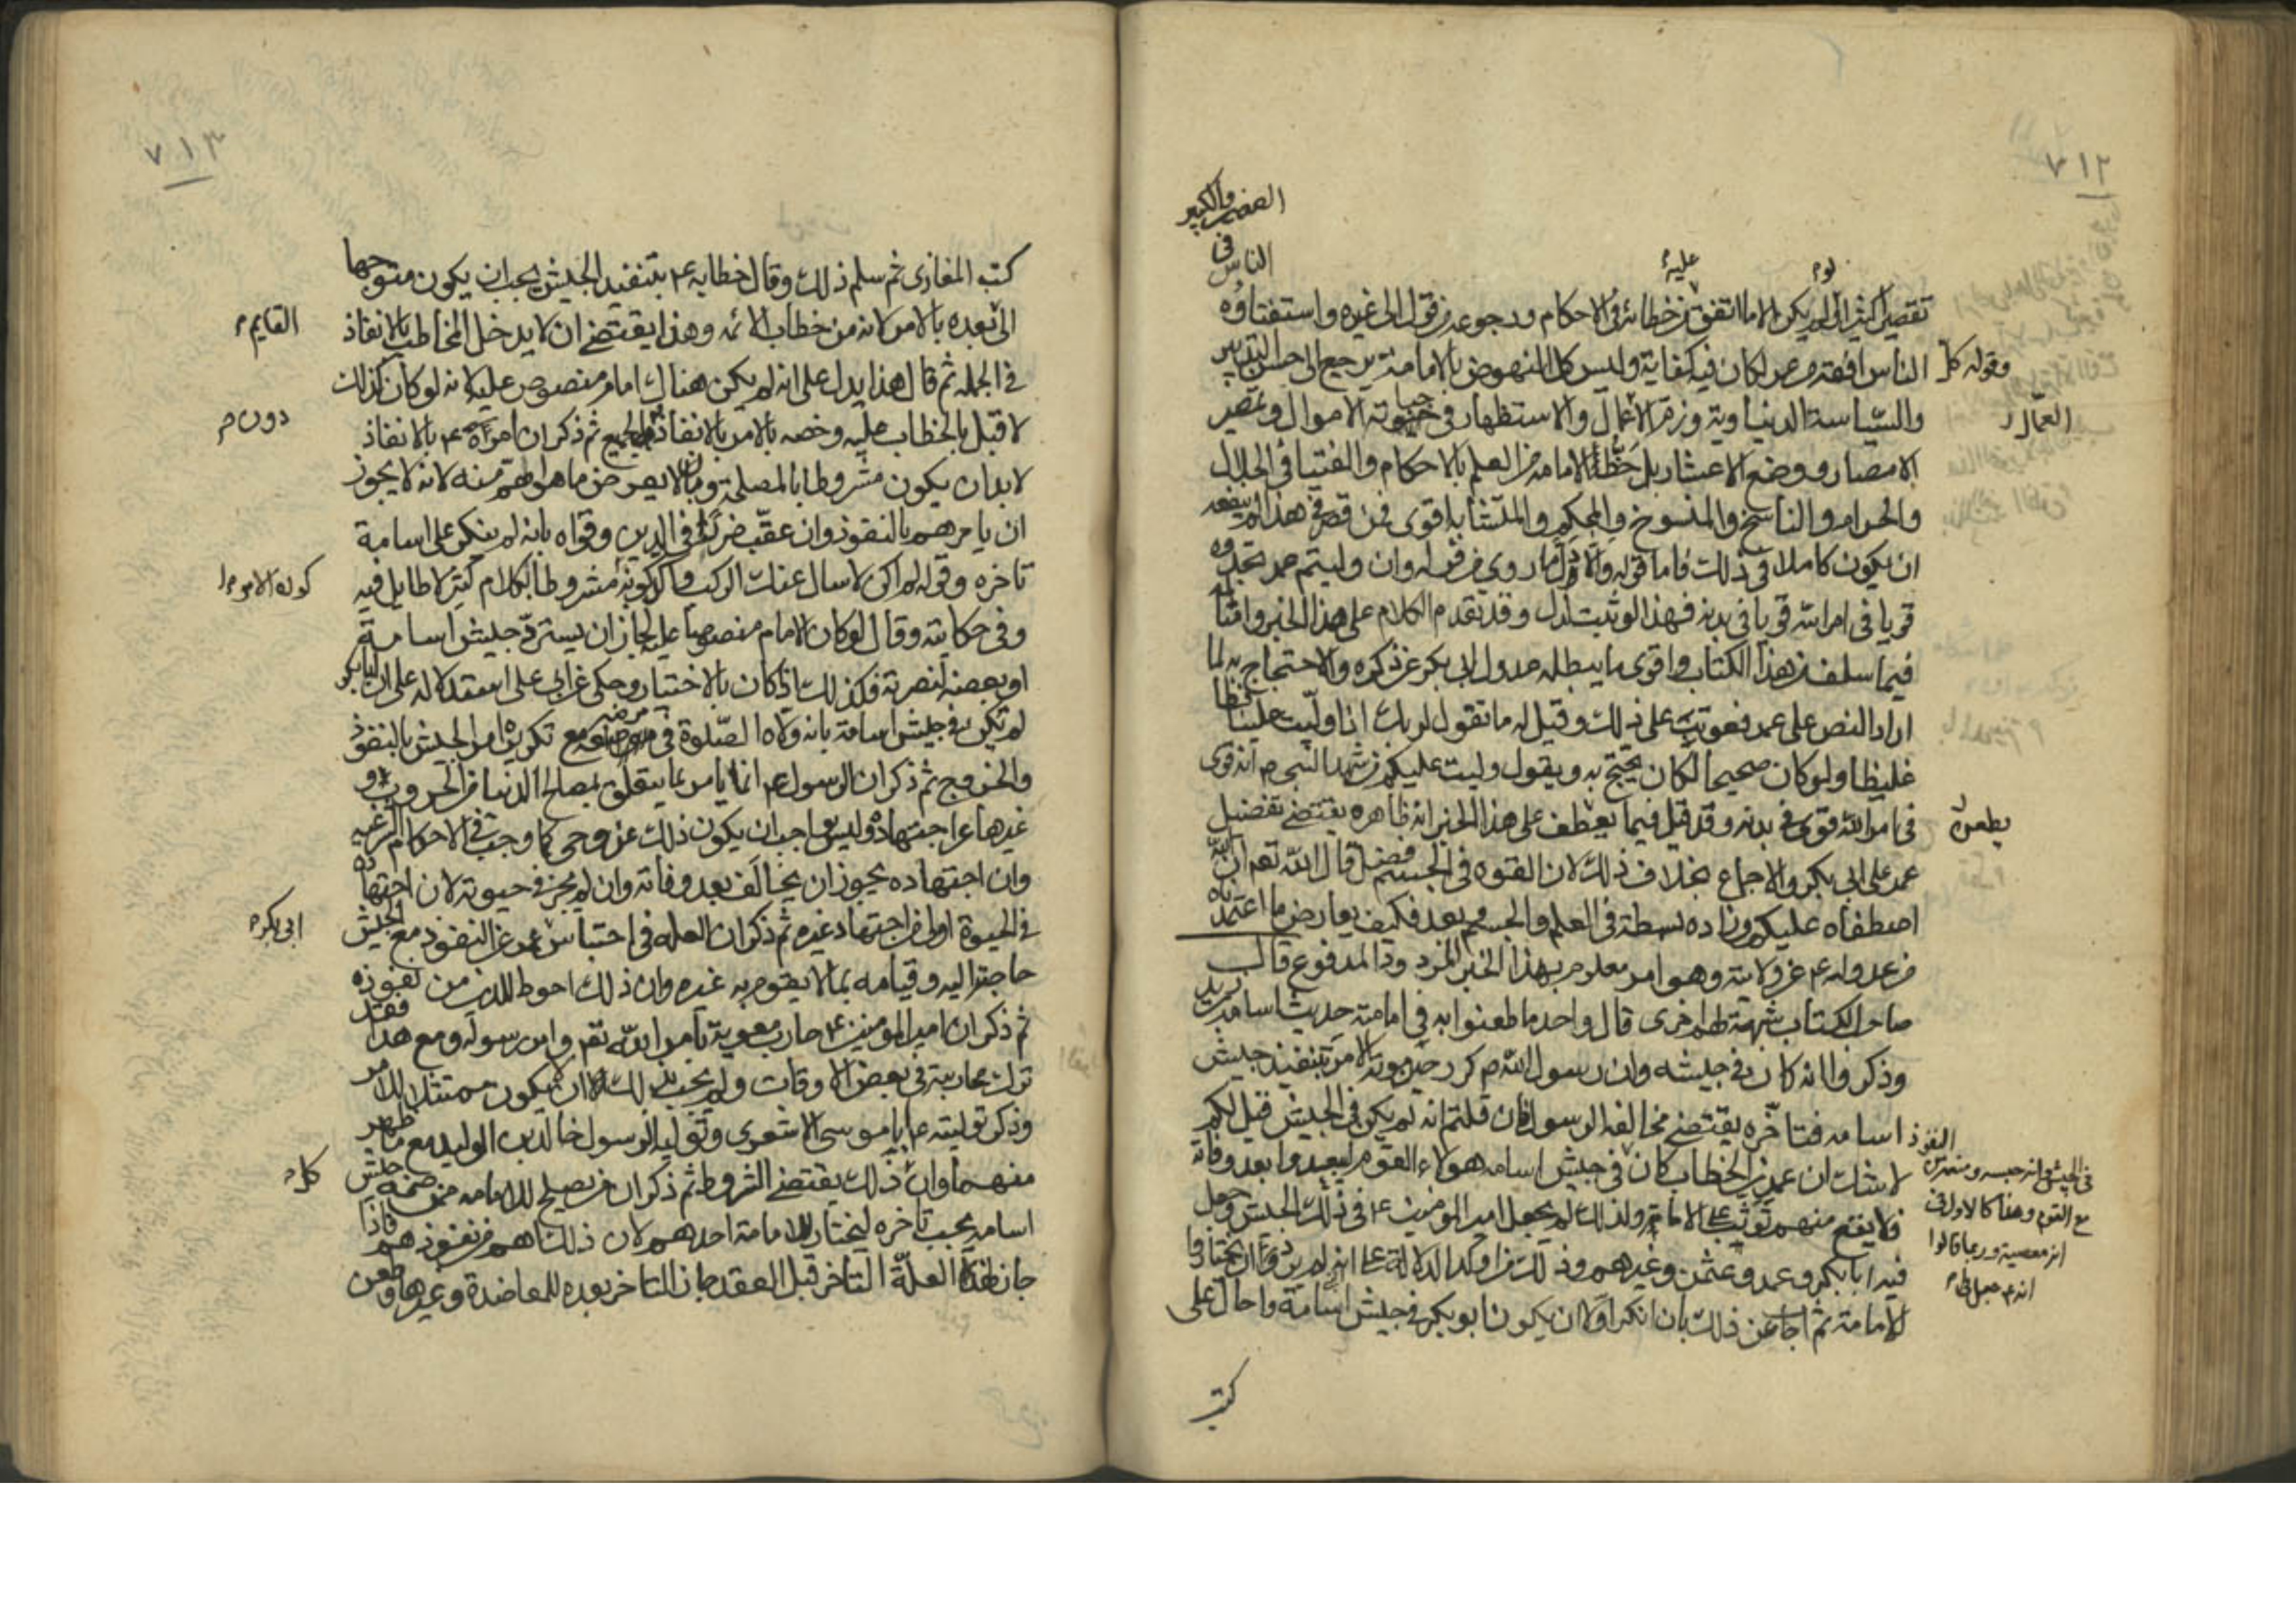 ٧١٢
الصغير والكبير
في
الناس
لو
عليه
تقصير اكثر ان لم يكن الا ما اتفق من خطائه في الاحكام ورجوعه من قول الى غيره واستفتاؤه
الناس افقه من عمر لكان فيه كفاية وليس كل النهوض بالامامة يرجع الى حسن التدبير
وقوله كل
والسياسة الدنياوية وزم الاعمال والاستظهار في جباية الاموال وتمصير
العمال
الامصار ووضع الاعشار بل حظ الامامة من العلم بالاحكام والفتيا في الحلال
والحرام والناسخ والمنسوخ والمحكم والمتشابه اقوى فمن قصر في هذا لم ينفعه
ان يكون كاملا في ذلك فاما قوله والا دل ما روى من قوله وان وليتم عمر تجدوه
قويا في امر الله قويا في بدنه فهذا لو ثبت لدل وقد تقدم الكلام على هذا الخبر وامثاله
فيما سلف من هذا الكتاب واقوى ما يبطله عدول ابي بكر عن ذكره والاحتجاج به لما
اراد النص على عمر فعوتب على ذلك وقيل له ما تقول لربك اذا وليت علينا فظا
غليظا ولو كان صحيحا لكان يحتج به ويقول وليت عليكم من شهد النبي ص انه قوى
في امر الله قوى في بدنه وقد قيل فيما يطعن على هذا الخبر ان ظاهره يقتضي تفضيل
يطعن
عمر على ابي بكر والاجماع بخلاف ذلك لان القوة في الجسم فضل قال الله تعم ان الله
اصطفاه عليكم وزاده بسطة في العلم والجسم وبعد فكيف يعارض ما اعتمدناه
من عدوله ع عن ولايته وهو امر معلوم بهذا الخبر المردود المدفوع قال
صاحب الكتاب شبهة لهم اخرى قال واحد ما طعنوا به في امامته حديث اسامة بن زيد
وذكروا انه كان في جيشه وان رسول الله ص كرر حين موته الامر بتنفيذ جيش
اسامه فتاخره يقتضي مخالفة الرسول فان قلتم انه لم يكن في الجيش قيل لكم
النفوذ
لا شك ان عمر بن الخطاب كان في جيش اسامه هولاء القوم ليبعدوا بعد وفاته
في الجيش انه حبسه ومنعه من
فلا يقع منهم توثب على الامامة ولذلك لم يجعل امير المؤمنين ع في ذلك الجيش وجعل
مع القوم وهذا كالاول في
فيه ابا بكر وعمر وعثمن وغيرهم وذلك من اوكد الدلالة على انه لم يرد ان يختاروا
انه معصية وربما قالوا
للامامة ثم اجاب عن ذلك بان انكر اولا ان يكون ابو بكر في جيش اسامة واحال على
انه ع جعل في
كتب
٧١٣
كتب المغازى ثم سلم ذلك وقال خطابه ع بتنفيذ الجيش يجب ان يكون متوجها
الى بعده بالامر لانه من خطاب الائمه وهذا يقتضي ان لا يدخل المخاطب بالانفاذ
القايم
في الجمله ثم قال هذا يدل على انه لم يكن هناك امام منصوص عليه لانه لو كان كذلك
لاقبل بالخطاب عليه وخصه بالامر بالانفاذ الجميع ثم ذكر ان امره ع بالانفاذ
دون
لا بد ان يكون مشروطا بالمصلحة وبان لا يعرض ما هو اهم منه لانه لا يجوز
ان يامرهم بالنفوذ وان عقب ضررا في الدين وقواه بانه لم ينكر على اسامة
تاخره وقوله لم اكن لاسال عنك الركب واكد كونه مشروطا بكلام كثير لا طايل فيه
كون الامر
وفي حكايته وقال لو كان الامام منصوصا عليه لجاز ان يسترد جيش اسامة
او بعضه لنصرته فكذلك اذا كان بالاختيار وحكى عن ابي على استدلاله على ان ابا بكر
لم يكن في جيش اسامة بانه ولاه الصلوة في مرضه مع تكريره امر الجيش بالنفوذ
والخروج ثم ذكر ان الرسول ع انما يامر بما يتعلق بمصالح الدنيا من الحروب و
غيرها عن اجتهاده وليس بواجب ان يكون ذلك عن وحي كما وجب في الاحكام الشرعيه
وان اجتهاده يجوز ان يخالف بعد وفاته وان لم يجز في حيوته لان اجتهاده
في الحيوة اولى من اجتهاد غيره ثم ذكر ان العله في احتباس عمر عن النفوذ مع الجيش
ابي بكر
حاجته اليه وقيامه بما لا يقوم به غيره وان ذلك احوط للدين من نفوذه
ثم ذكر ان امير المومنين ع حارب معوية بامر الله تعم وامر رسوله ومع هذا فقد
ترك محاربته في بعض الاوقات ولم يجب بذلك الا ان يكون ممتثلا للامر
وذكر توليته ع ابا موسى الاشعرى وتولية الرسول خالد بن الوليد مع ما ظهر
منهما وان ذلك يقتضي الشروط ثم ذكر ان من يصلح للامامه ممن ضمه جيش
كل
اسامه يجب تاخره ليختار للامامة احدهم لان ذلك اهم من نفوذهم فاذا
جاز لهذه العلة التاخر قبل العقد جاز التاخر بعده للمعاضدة وغيرها وطعن